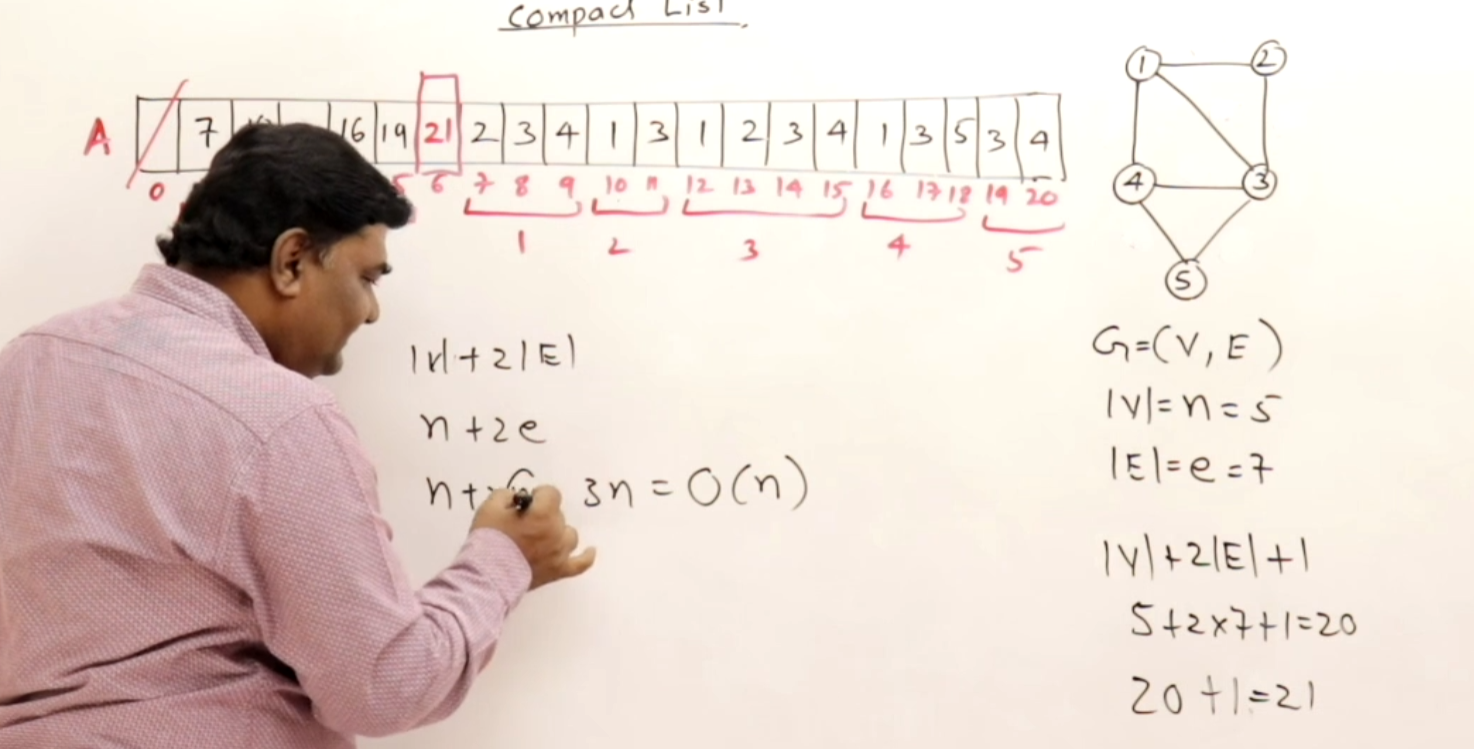 Compact List
A 7 16 19 21 2 3 4 1 3 1 2 3 4 1 3 5 3 4
0 5 6 7 8 9 10 11 12 13 14 15 16 17 18 19 20
1 2 3 4 5
1 2
4 3
5
|V|+2|E|
n+2e
n+ 3n = O(n)
G=(V, E)
|V|=n=5
|E|=e=7
|V|+2|E|+1
5+2x7+1=20
20+1=21